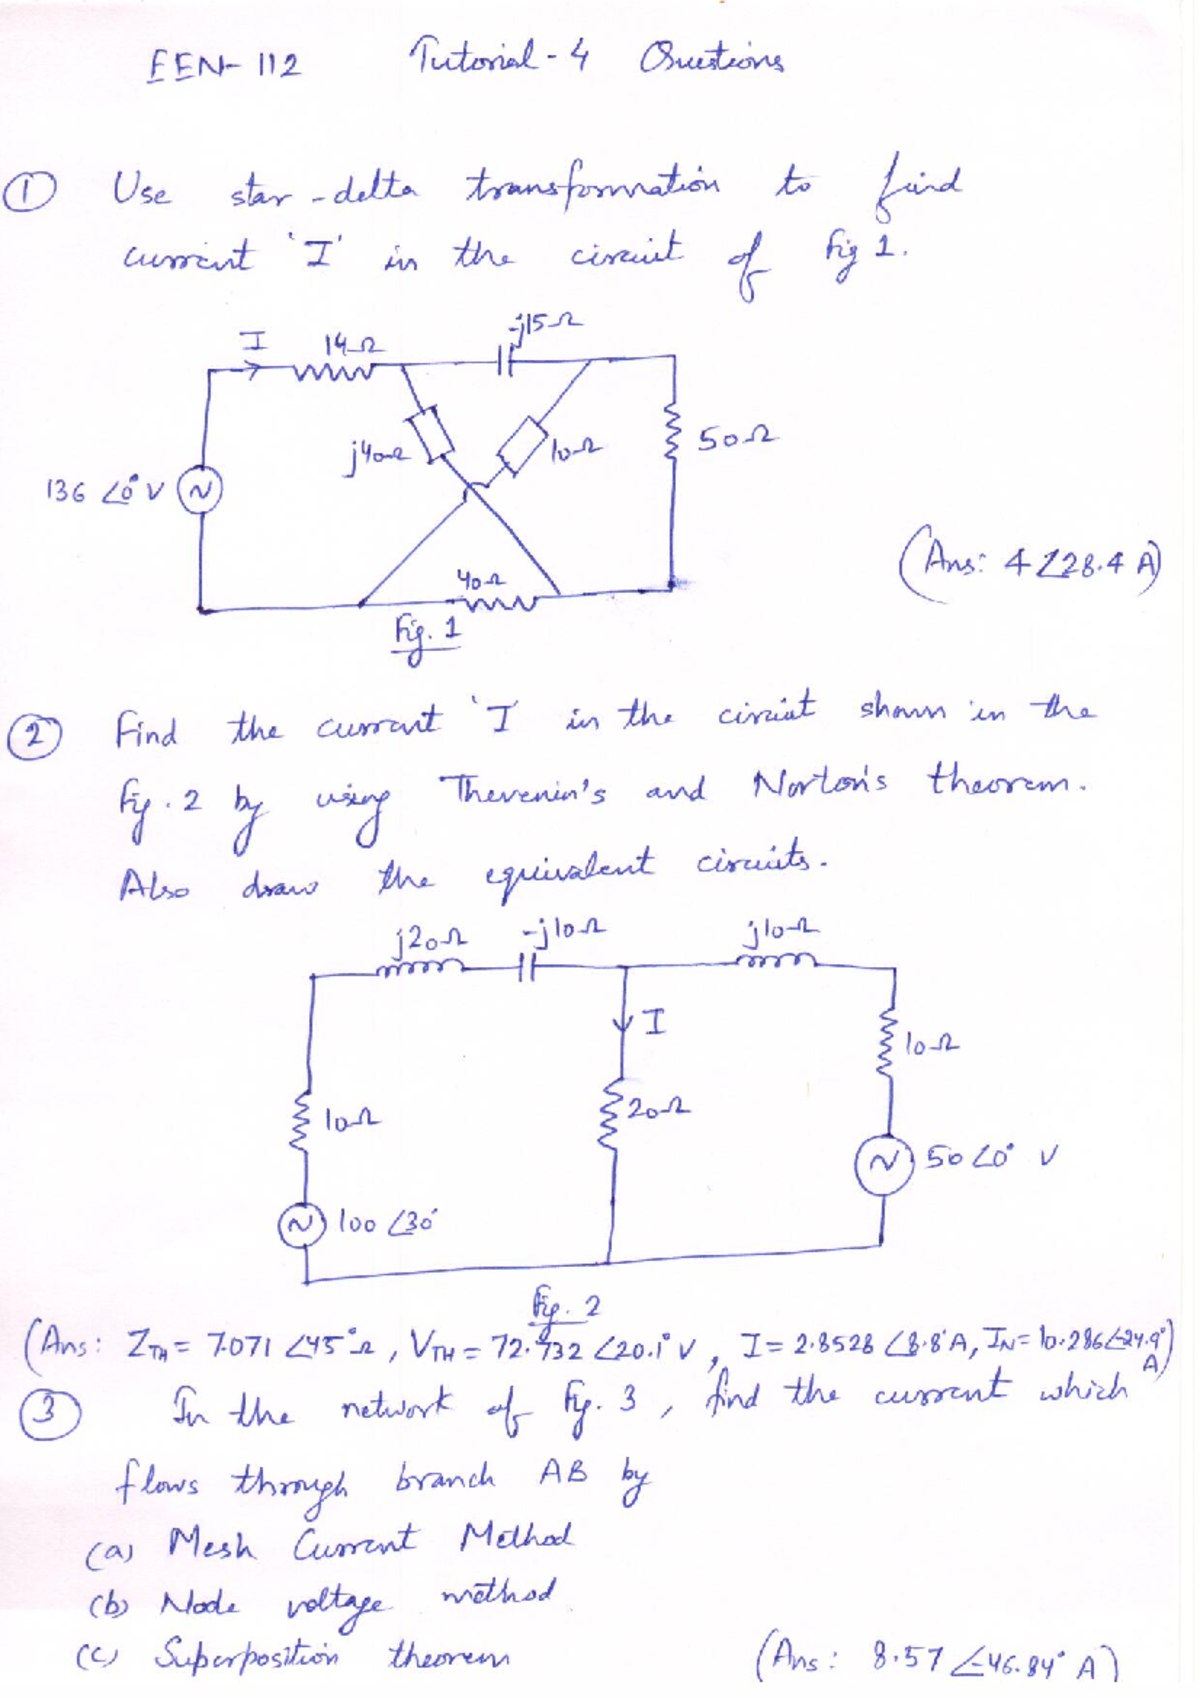 EEN-112 Tutorial-4 Questions
① Use star-delta transformation to find
current 'I' in the circuit of Fig 1.
I 14Ω -j15Ω
j40Ω 10Ω 50Ω
136 ∠0° V
40Ω
(Ans: 4 ∠28.4 A)
Fig. 1
② Find the current 'I' in the circuit shown in the
Fig. 2 by using Thevenin's and Norton's theorem.
Also draw the equivalent circuits.
j20Ω -j10Ω j10Ω
I
10Ω
10Ω 20Ω
50 ∠0° V
100 ∠30°
Fig. 2
(Ans: ZTH = 7.071 ∠45° Ω, VTH = 72.732 ∠20.1° V, I = 2.8528 ∠8.8° A, IN = 10.286 ∠-24.9° A)
③ In the network of Fig. 3, find the current which
flows through branch AB by
(a) Mesh Current Method
(b) Node voltage method
(c) Superposition theorem (Ans: 8.57 ∠-46.84° A)